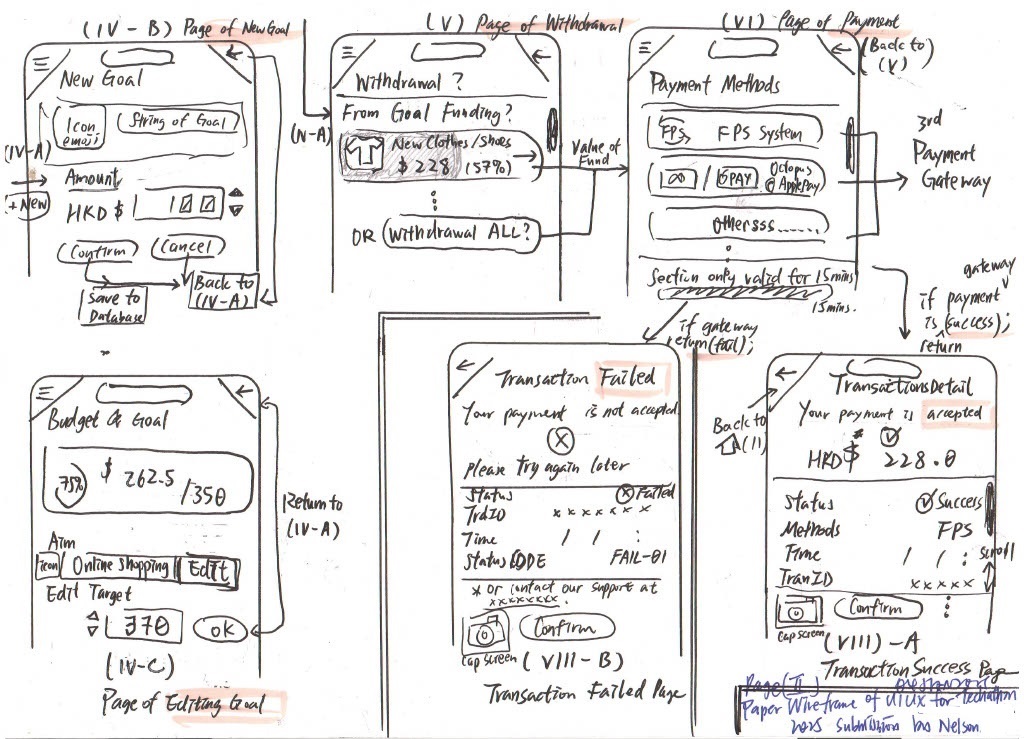 (IV - B) Page of New Goal
New Goal
Icon
emoji
String of Goal
(IV-A)
+ New
Amount
HKD $ 100
Confirm
Cancel
Save to
Database
Back to
(IV-A)
(V) Page of Withdrawal
Withdrawal ?
From Goal Funding?
(IV-A)
New Clothes/Shoes
$ 228 (57%)
OR Withdrawal ALL?
Value of
Fund
(VI) Page of Payment
(Back to
(V)
Payment Methods
FPS
FPS System
/ GPAY
Octopus
@ApplePay
Othersss......
Section only valid for 15mins
15mins.
3rd
Payment
Gateway
if gateway
return (fail);
gateway
if payment
is (success);
return
(IV-C)
Page of Editing Goal
Budget & Goal
75%
$ 262.5
/350
Aim
icon
Online shopping
Edit
Edit Target
370
OK
Return to
(IV-A)
Transaction Failed
Your payment is not accepted.
Please try again later
Status Failed
TrdID x x x x x x x
Time / / :
Status CODE FAIL-01
* or contact our support at
xxxxxxxx.
Cap screen
Confirm
(VIII - B)
Transaction Failed Page
Back to
(II)
Transactions Detail
Your payment is accepted
HKD $ 228.0
Status Success
Methods FPS
Time / / :
TranID x x x x x
scroll
Cap screen
Confirm
(VIII) - A
Transaction Success Page
Page (II)
Paper Wireframe of UIUX for Techathon
2025 submission by Nelson